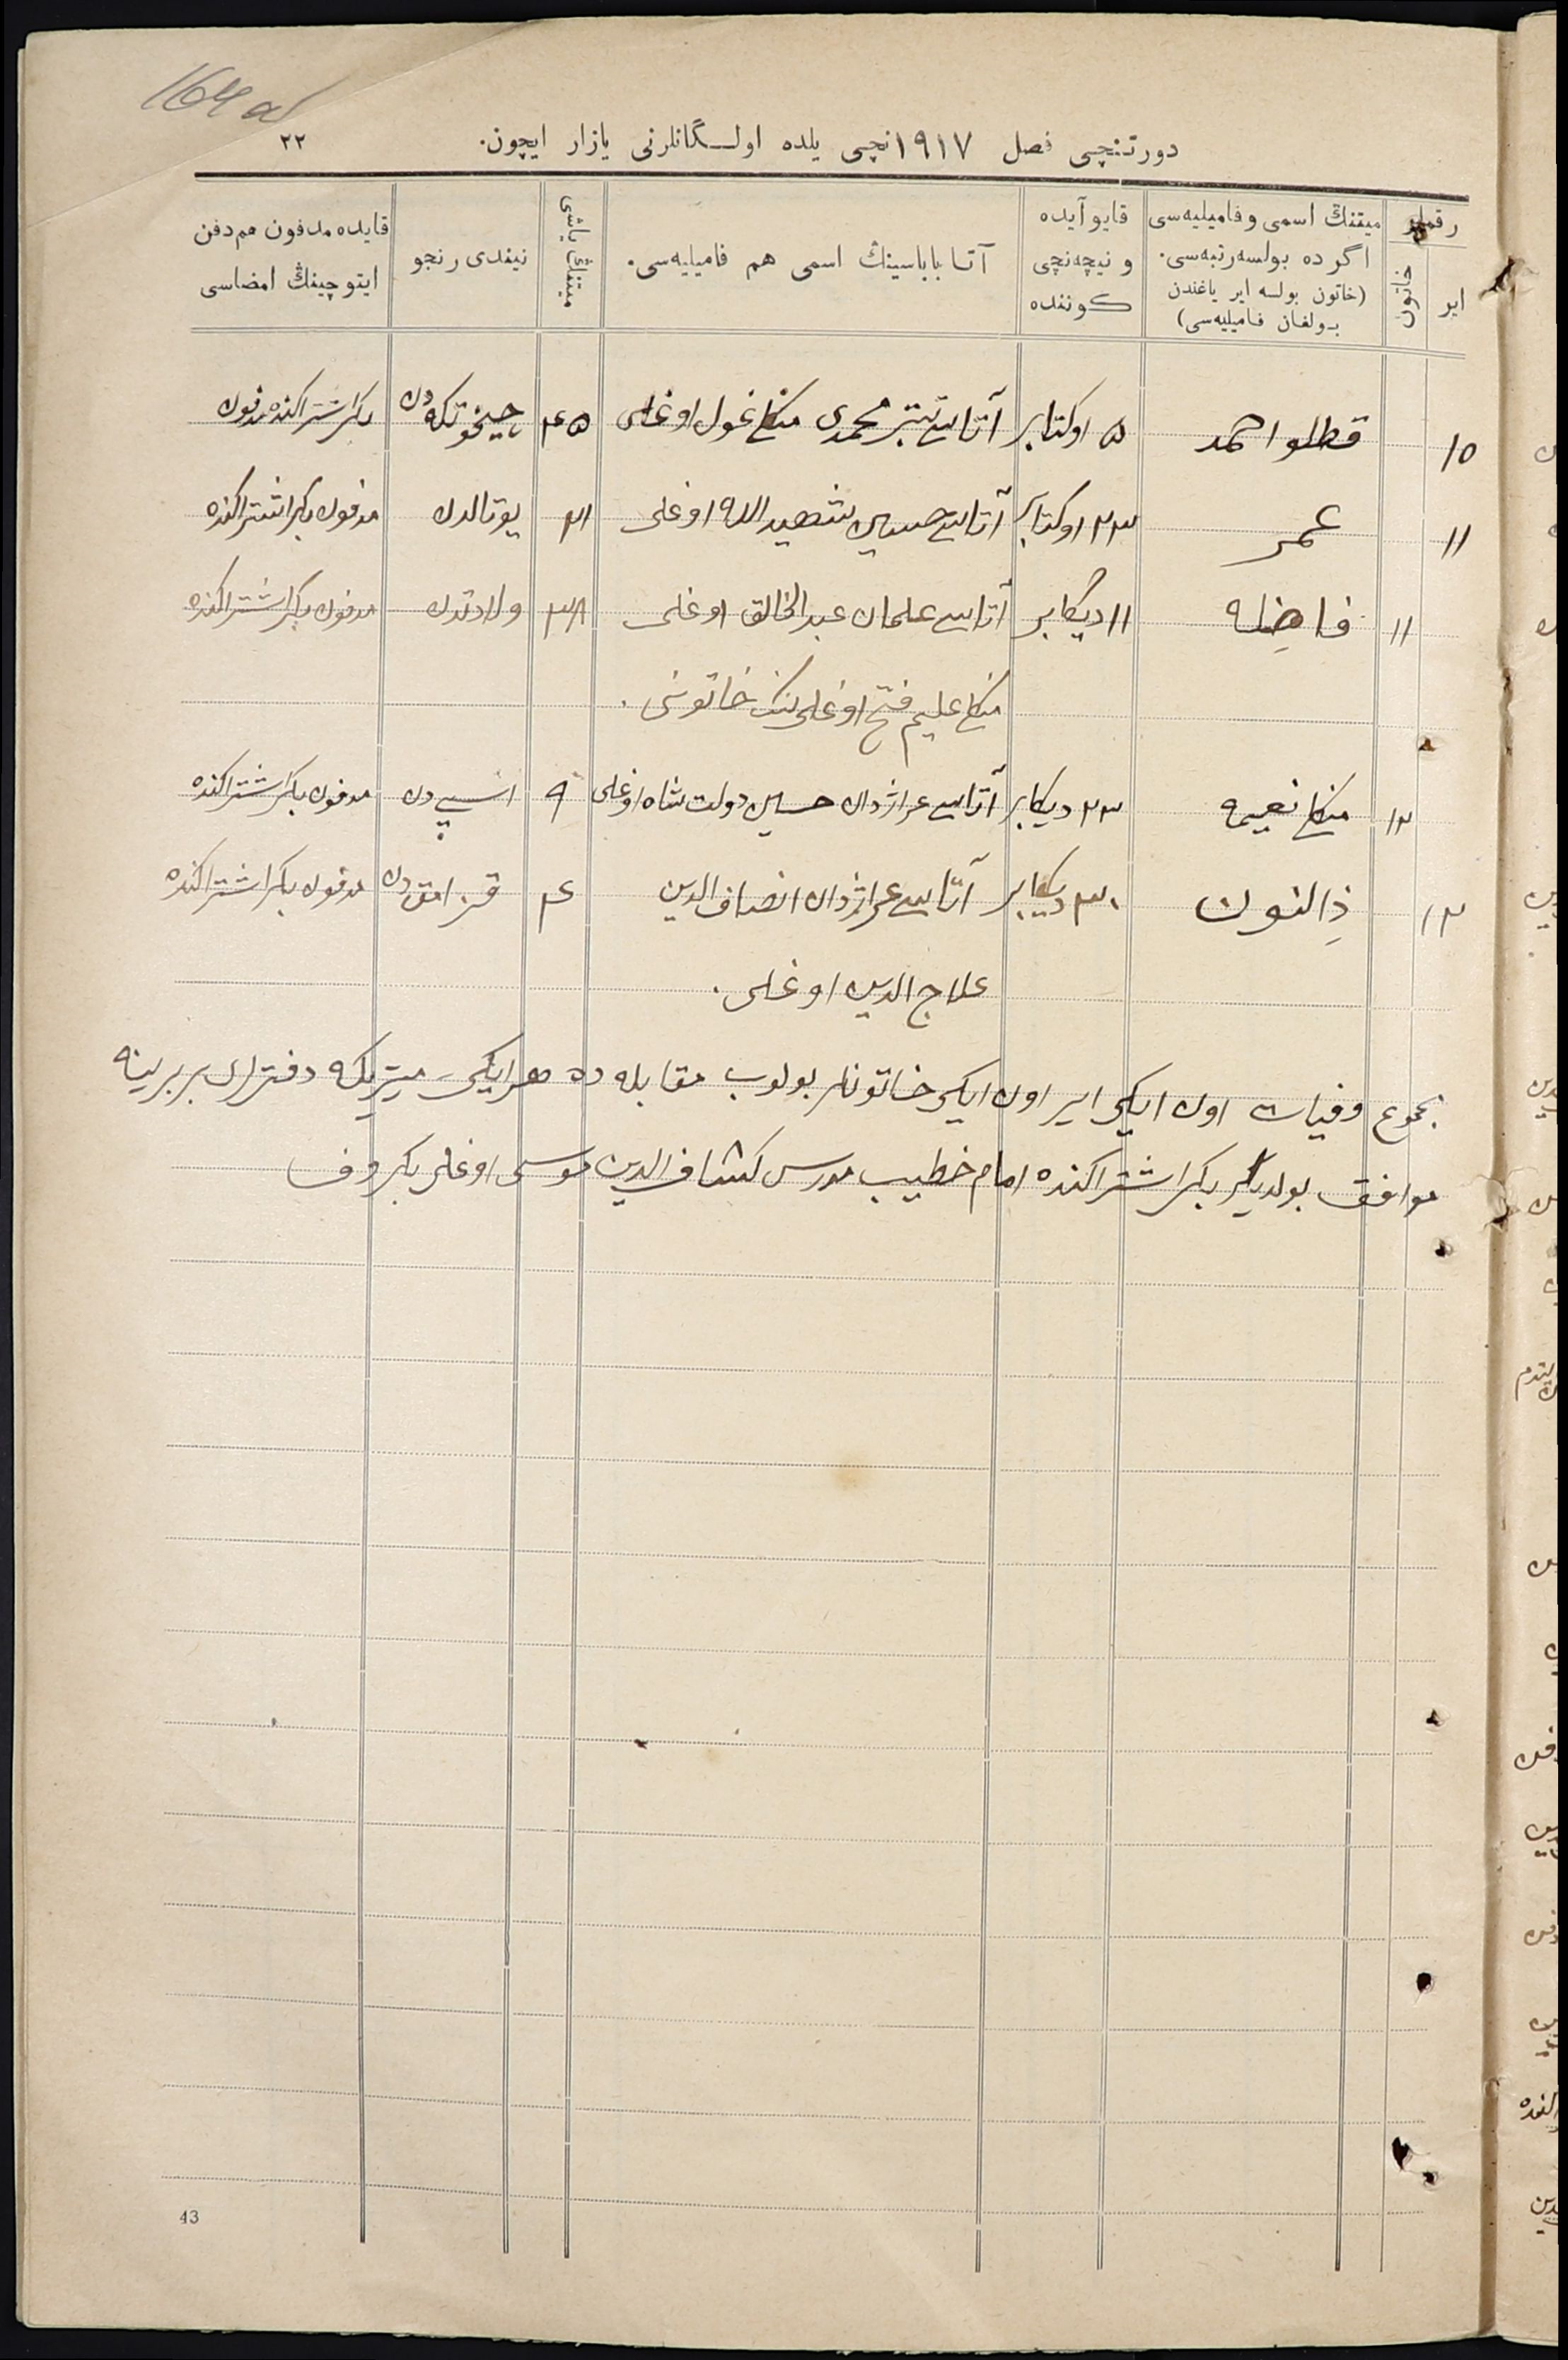 164 об
دورتنچی فصل ۱۹۱۷نچی یلده اولـگانلرنی یازار ایچون.
۲۲
رقملر
ایر
خاتون
میتنڭ اسمی وفامیلیه‌سی
اگر ده بولسه رتبه‌سی.
(خاتون بولسه ایر یاغندن
بـولغان فـامیلیه‌سی)
قایو آیده
و نیچه‌نچی
کوننده
آتـا بـابـاسینڭ اسمی هم فامیلیه‌سی.
میتنڭ یاشی
نیندی رنجو
قایده مدفون هم دفن
ایتوچینڭ امضاسی
۱۰ قطلو احمد ۵ اوکتابر آتاسی محمدی اوغلی ۴۵ چیخوتکه دن بکراشتراکنده مدفون
۱۱ عمر ۲۳ اوکتابر آتاسی حسین شهید الله اوغلی ۲۱ یوتالدن مدفون بکراشتراکنده
۱۱ فاضله ۱۱ دیکابر آتاسی علمان عبدالخالق اوغلی ۳۸ ولادتدن مدفون بکراشتراکنده
منکلی علیم فتح اوغلی ننک خاتونی.
۱۲ منکلی نعیمه ۲۳ دیکابر آتاسی حسین دولت شاه اوغلی ۹ اسپی دن مدفون بکراشتراکنده
۱۲ ذالنون ۳۰ دیکابر آتاسی انصاف الدین ۴ قزامق دن مدفون بکراشتراکنده
علاج الدین اوغلی.
مجموع وفیات اون ایکی ایر اون ایکی خاتونلر بولوب مقابله ده هر ایکی میتریکه دفترلری بر برینه
موافق بولدیلر بکراشتراکنده امام خطیب مدرس کشاف الدین موسی اوغلی بکروف
43